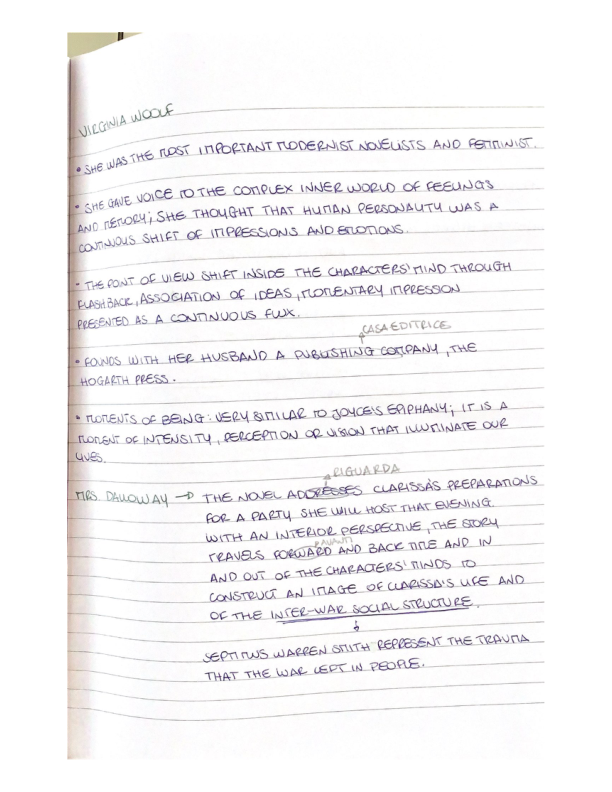 VIRGINIA WOOLF
• SHE WAS THE MOST IMPORTANT MODERNIST NOVELISTS AND FEMMINIST.
• SHE GAVE VOICE TO THE COMPLEX INNER WORLD OF FEELINGS
AND MEMORY; SHE THOUGHT THAT HUMAN PERSONALITY WAS A
CONTINUOUS SHIFT OF IMPRESSIONS AND EMOTIONS.
• THE POINT OF VIEW SHIFT INSIDE THE CHARACTERS' MIND THROUGH
FLASHBACK, ASSOCIATION OF IDEAS, MOMENTARY IMPRESSION
PRESENTED AS A CONTINUOUS FLUX.
CASA EDITRICE
• FOUNDS WITH HER HUSBAND A PUBLISHING COMPANY, THE
HOGARTH PRESS.
• MOMENTS OF BEING: VERY SIMILAR TO JOYCE'S EPIPHANY; IT IS A
MOMENT OF INTENSITY, PERCEPTION OR VISION THAT ILLUMINATE OUR
LIVES.
RIGUARDA
MRS. DALLOWAY → THE NOVEL ADDRESSES CLARISSA'S PREPARATIONS
FOR A PARTY SHE WILL HOST THAT EVENING.
WITH AN INTERIOR PERSPECTIVE, THE STORY
AVANTI
TRAVELS FORWARD AND BACK TIME AND IN
AND OUT OF THE CHARACTERS' MINDS TO
CONSTRUCT AN IMAGE OF CLARISSA'S LIFE AND
OF THE INTER-WAR SOCIAL STRUCTURE.
↓
SEPTIMUS WARREN SMITH REPRESENT THE TRAUMA
THAT THE WAR LEFT IN PEOPLE.